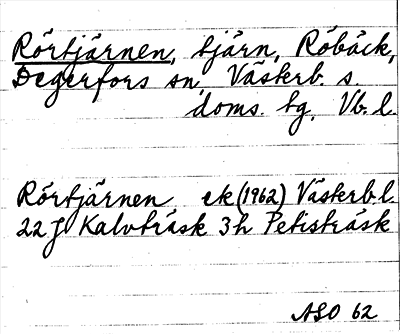 Rörtjärnen, tjärn, Röbäck,
Degerfors sn, Västerb. s.
doms. tg, Vb. l.
Rörtjärnen ek (1962) Västerb.l.
22 J Kalvträsk 3h Petisträsk
ASO 62